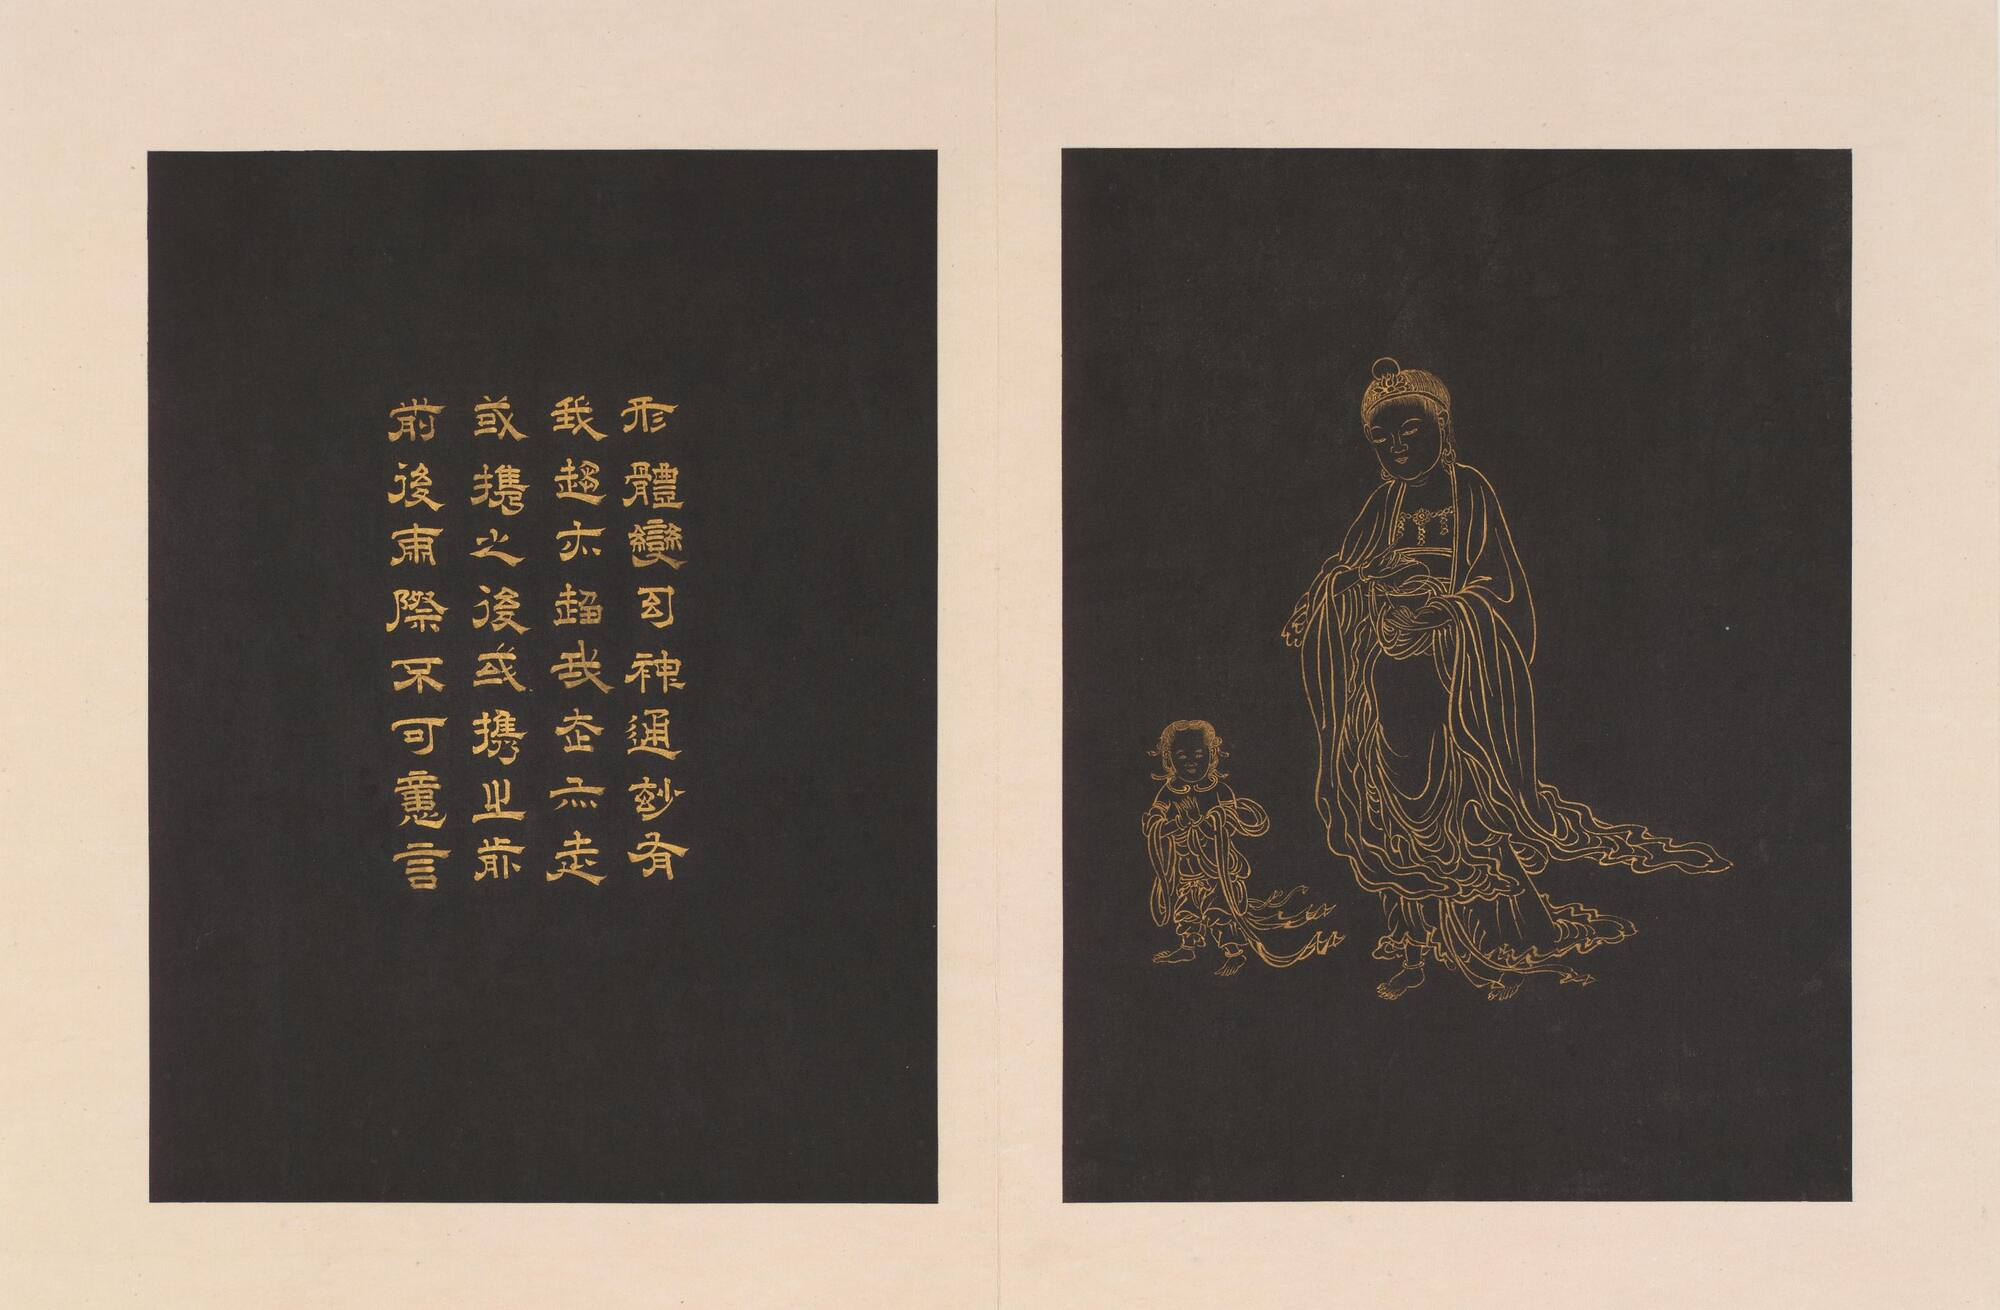 形體變幻神通妙有
我趨亦趨我走亦走
或攜之後或攜之前
前後際不可意言